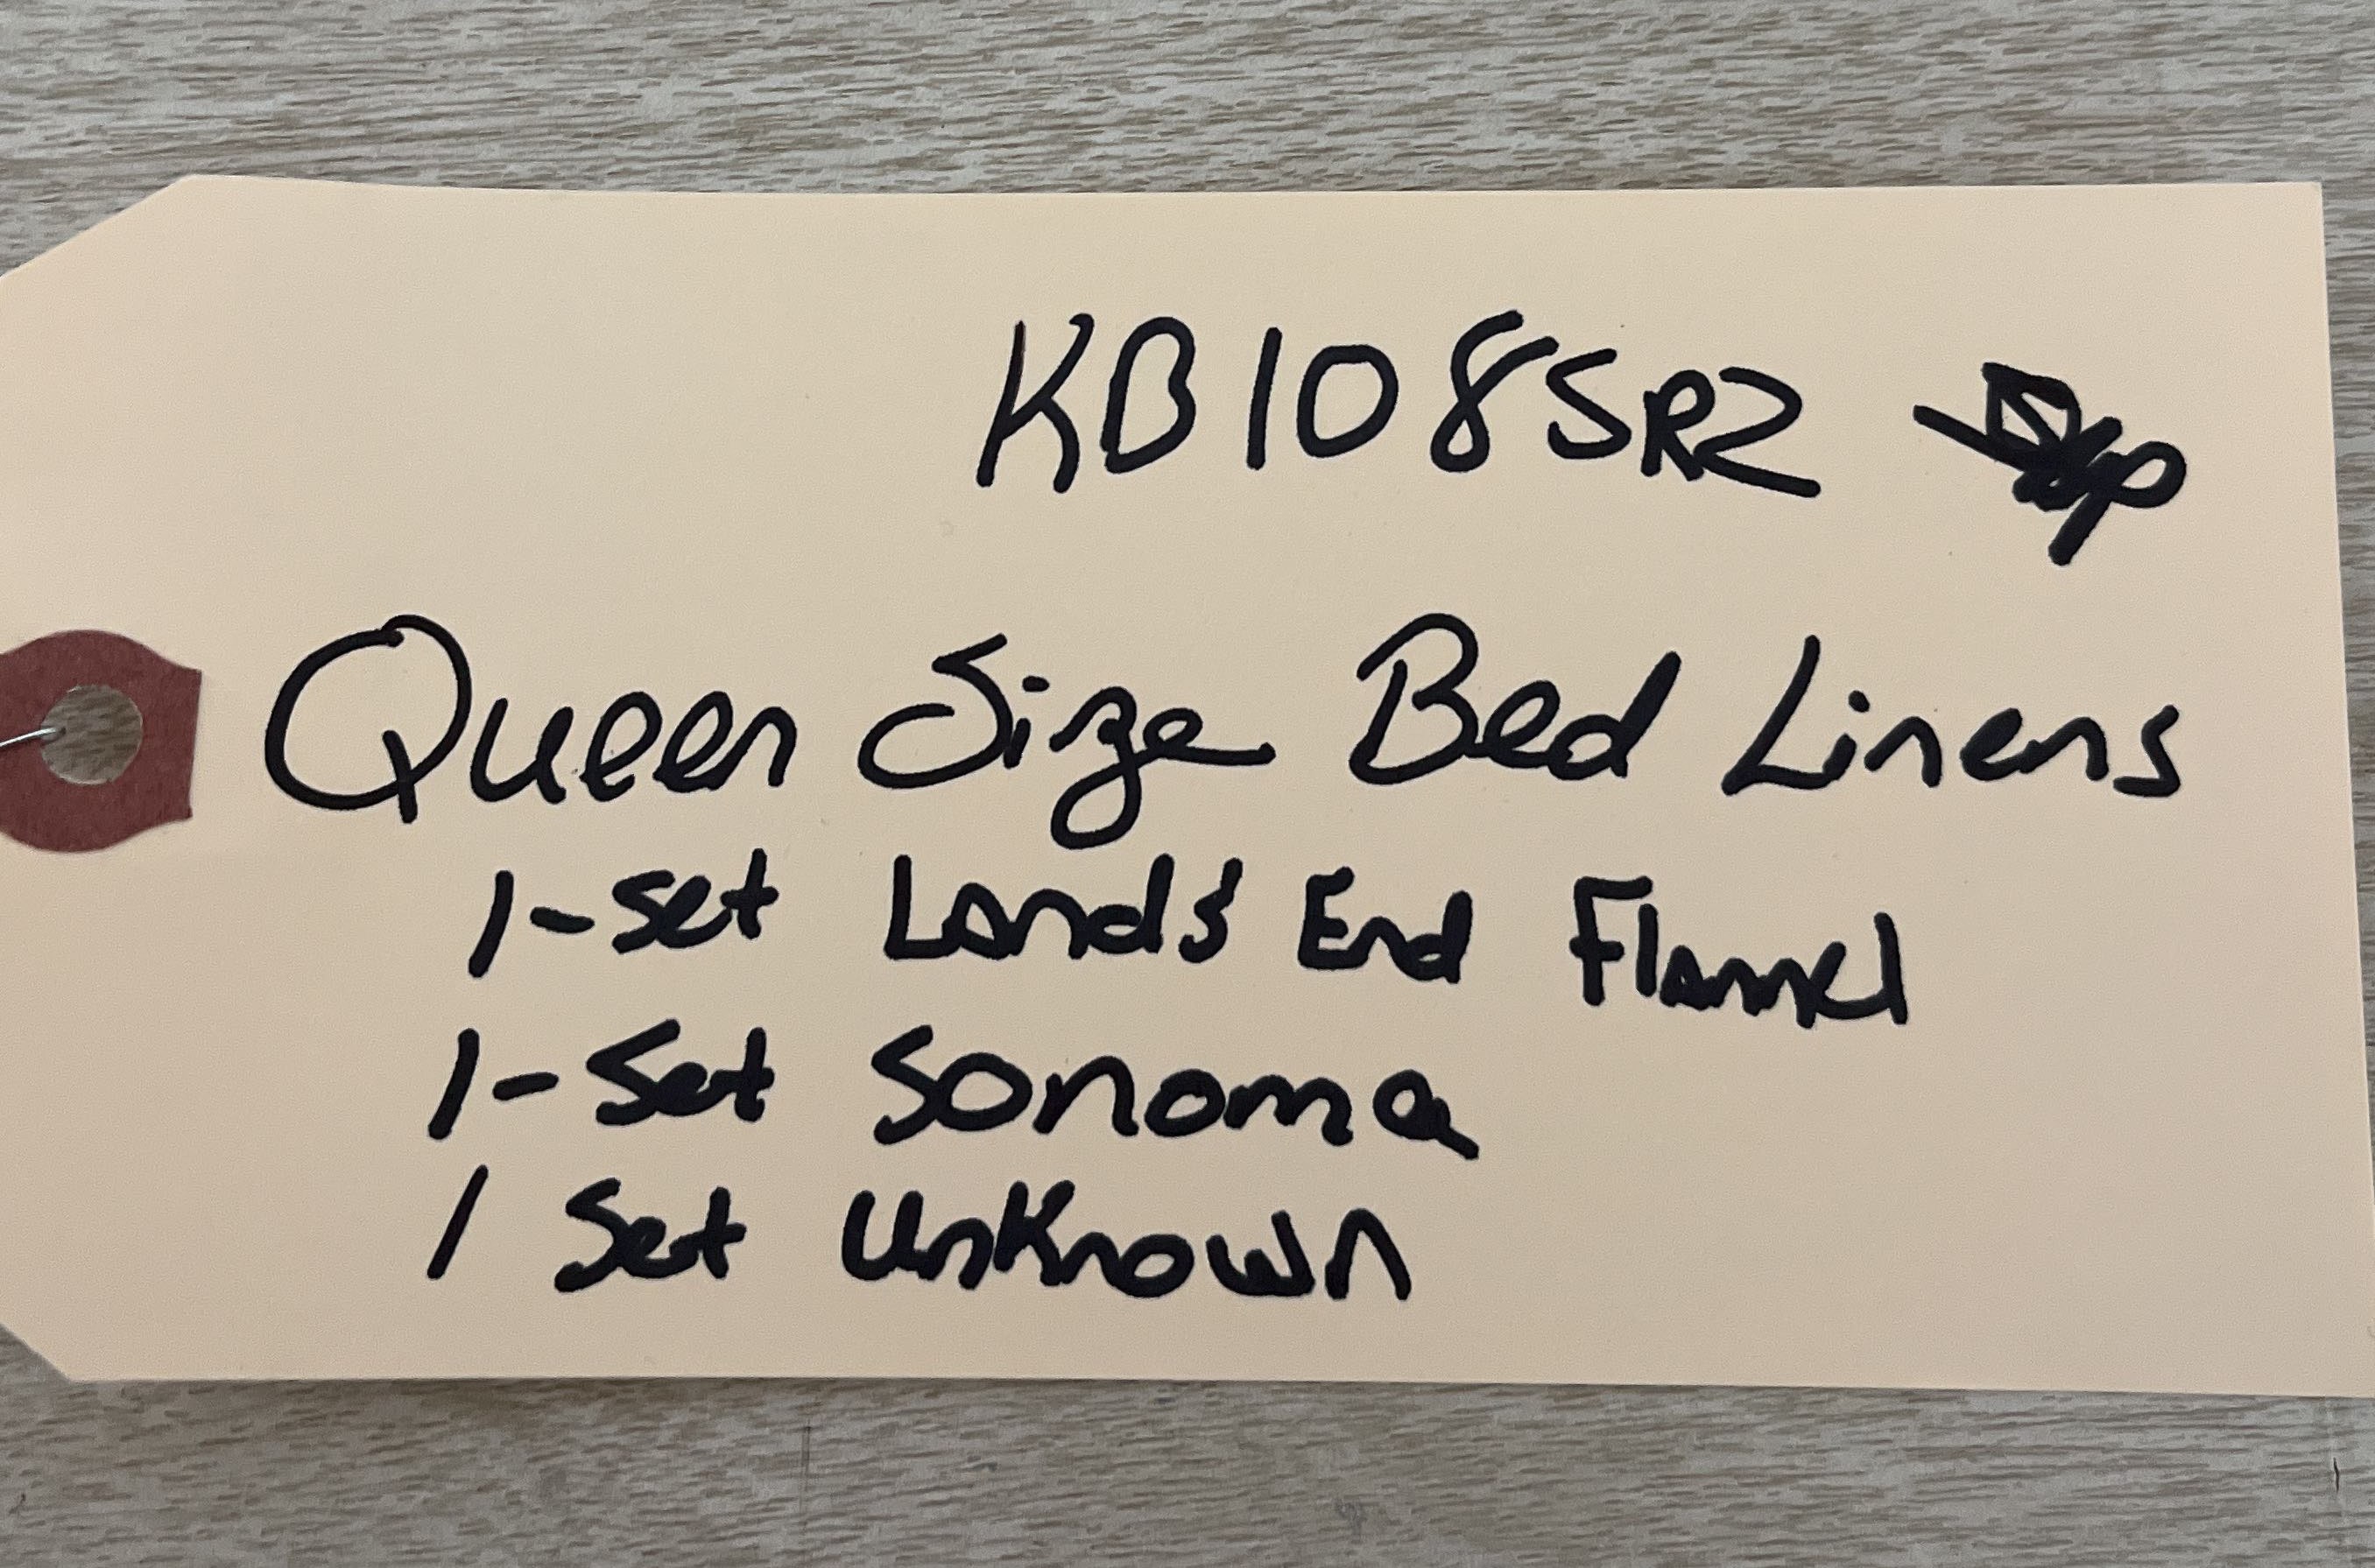 KB108SR2
Queen Size Bed Linens
1-set Land's End Flannel
1-Set Sonoma
1 Set Unknown